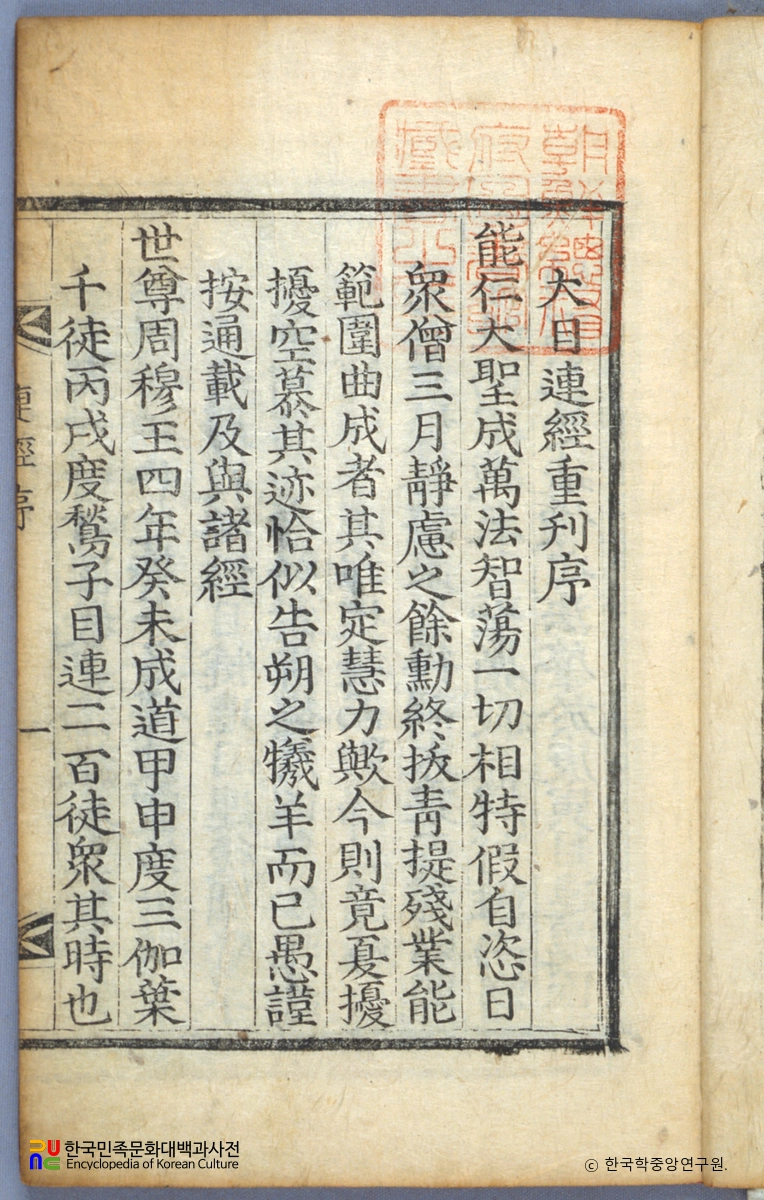 朝鮮總督
府圖書館
藏書之印
大目連經重刊序
能仁大聖成萬法智蕩一切相特假自恣日
衆僧三月靜慮之餘勳終拔靑提殘業能
範圍曲成者其唯定慧力歟今則竟夏擾
擾空慕其迹恰似告朔之犧羊而已愚謹
按通載及與諸經
世尊周穆王四年癸未成道甲申度三伽葉
千徒丙戌度鶖子目連二百徒衆其時也
連經序 一
한국민족문화대백과사전
Encyclopedia of Korean Culture
© 한국학중앙연구원.